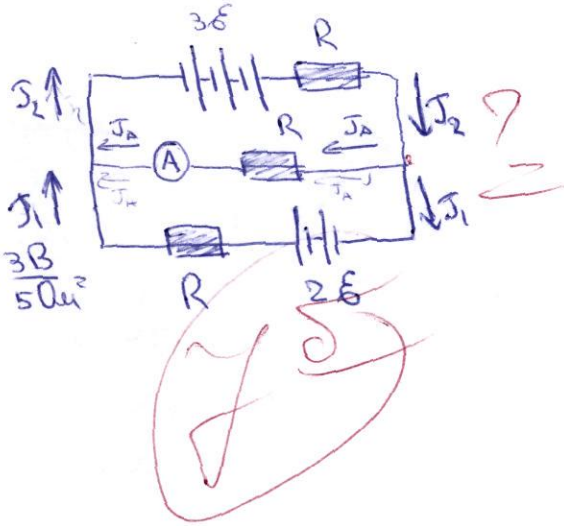 3ℰ
R
J₂
J₂ ?
J_A
R
J_A
A
J_A
J_A
J₁
J₁
3B
5Ом²
R
2ℰ
5